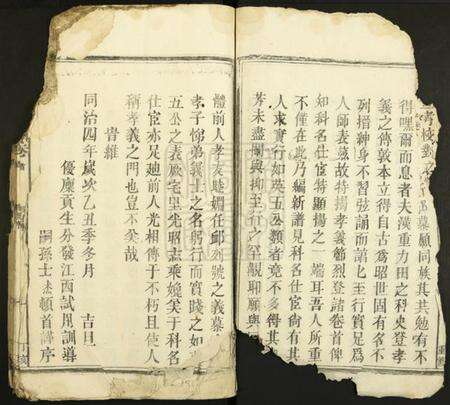 得嘿爾而息者夫漢重力田之科史登孝
義之傳敦本立得自古為昭世固有名不
列搢紳身不習弦誦而諸匕至行實足為
人師表感故特揭孝義節烈登諸卷首俾
知科名仕宦特顯揚之一端耳吾人所重
不僅在此乃編新譜見科名仕宦尚有其
人求實行如英五公類者竟不多得其
芳未盡闡與抑至行之罕覯耶願與
體前人孝友睦婣任卹列號之義墓
孝子悌弟義士之名躬行而實踐之如
五公之表厥宅里光昭志乘嬈美于科名
仕宦亦足廸前人光相傳于不朽且使人
稱孝義之門也豈不矣哉
旹維
同治四年歲次乙丑季冬月 吉旦
優廩貢生分發江西試用訓導
嗣孫士杰頓首謹序